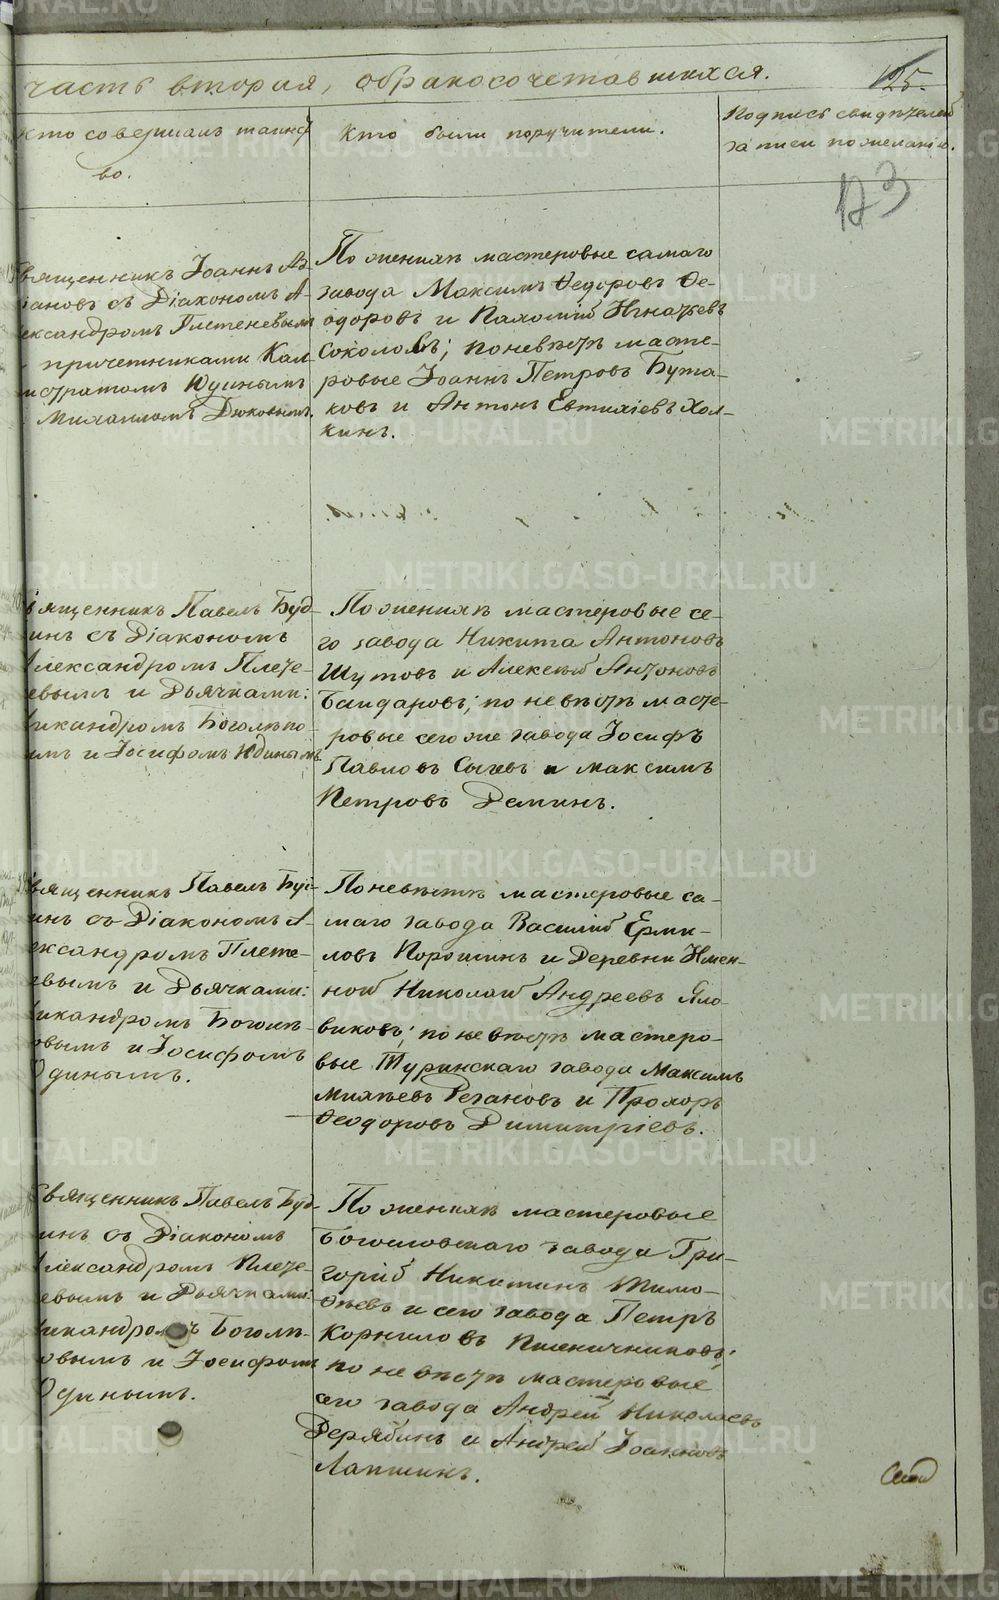 часть вторая, о бракосочетавшихся.
125.
Кто совершалъ таинст
во.
Кто были поручители.
Подпись свидѣтелей
записи по желанію.
123
вященникъ Іоаннъ Аз
ановъ съ Діакономъ А-
ександромъ Плетеневымъ
причетниками Кал-
истратомъ Юдинымъ
Михаиломъ Дюковымъ.
По женихѣ мастеровые самаго
завода Максимъ Ѳедоровъ Ѳе-
одоровъ и Пахомій Игнатьевъ
Соколовъ; по невѣстѣ масте-
ровые Іоаннъ Петровъ Бута-
ковъ и Антонъ Евтихіевъ Хол-
кинъ.
вященникъ Павелъ Буд-
инъ съ Діакономъ
лександромъ Плете-
евымъ и Дьячками:
икандромъ Боголѣпо-
ымъ и Іосифомъ Юдинымъ
По женихѣ мастеровые се-
го завода Никита Антоновъ
Шутовъ и Алексѣй Антоновъ
Бандаровъ; по невѣстѣ масте-
ровые сего же завода Іосифъ
Павловъ Сычевъ и Максимъ
Петровъ Деминъ.
вященникъ Павелъ Буд-
инъ съ Діакономъ А-
ександромъ Плете-
евымъ и Дьячками:
икандромъ Боголѣ-
овымъ и Іосифомъ
Юдинымъ.
По невѣстѣ мастеровые са-
маго завода Василій Ерми-
ловъ Порошинъ и Деревни Имен-
ной Николай Андреевъ Яло-
виковъ; по невѣстѣ мастеро-
вые Туринскаго завода Максимъ
Михѣевъ Резановъ и Прохоръ
Ѳеодоровъ Димитріевъ.
Священникъ Павелъ Буд-
инъ съ Діакономъ
лександромъ Плете-
евымъ и Дьячками:
икандромъ Боголѣ-
овымъ и Іосифомъ
Юдинымъ.
По женихѣ мастеровые
Богословскаго завода Гри-
горій Никитинъ Тимо-
ѳѣевъ и сего завода Петръ
Корниловъ Пшеничниковъ;
по невѣстѣ мастеровые
сего завода Андрей Николаевъ
Дерябинъ и Андрей Іоанновъ
Лапшинъ.
METRIKI.GASO-URAL.RU